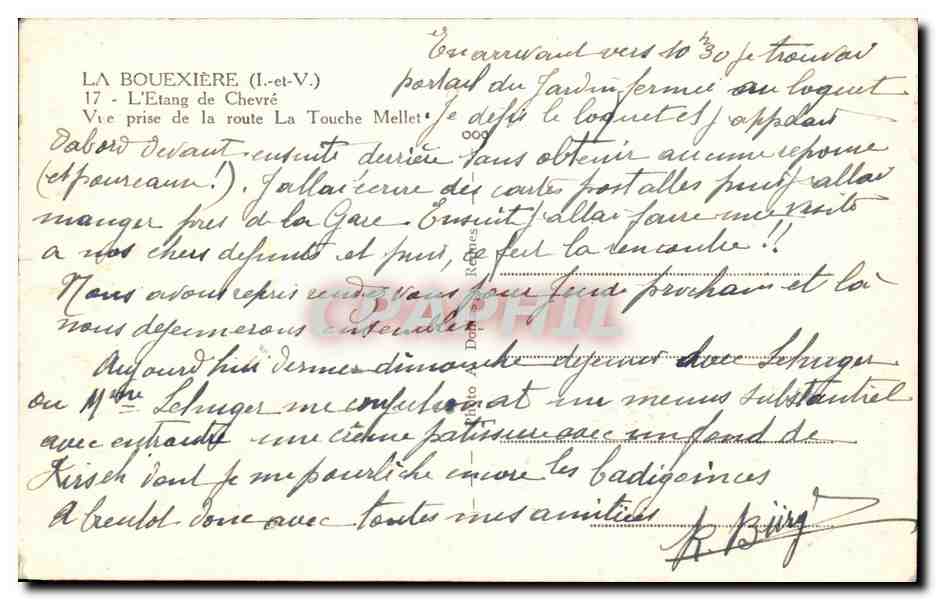 En arrivant vers 10 h 30 je trouvai
LA BOUEXIÈRE (I.-et-V.)
portail du Jardin fermée au loquet
17 - L'Etang de Chevré
Vue prise de la route La Touche Mellet
Je défis le loquet et j'appelais
d'abord devant ensuite derrière sans obtenir aucune reponse
(et pour cause!). J'allai écrire des cartes postalles puis j'allai
manger près de la Gare. Ensuit j'allai faire une visite
a nos chers defunts et puis, ce fut la rencontre!!
Nous avons repris rendez vous pour Jeudi prochain et là
nous dejeunerons ensembles
Aujourd'hui dernier dimanche dejeuner chez Lehuger
ou Mme Lehuger me un menus substantiel
avec entraute une crème patissiere avec un fond de
Kirsch dont je me pourliche encore les badigoinces
A bientot donc avec toutes mes amitiées
R. Bürg
Photo Rennes
CPAPHIL